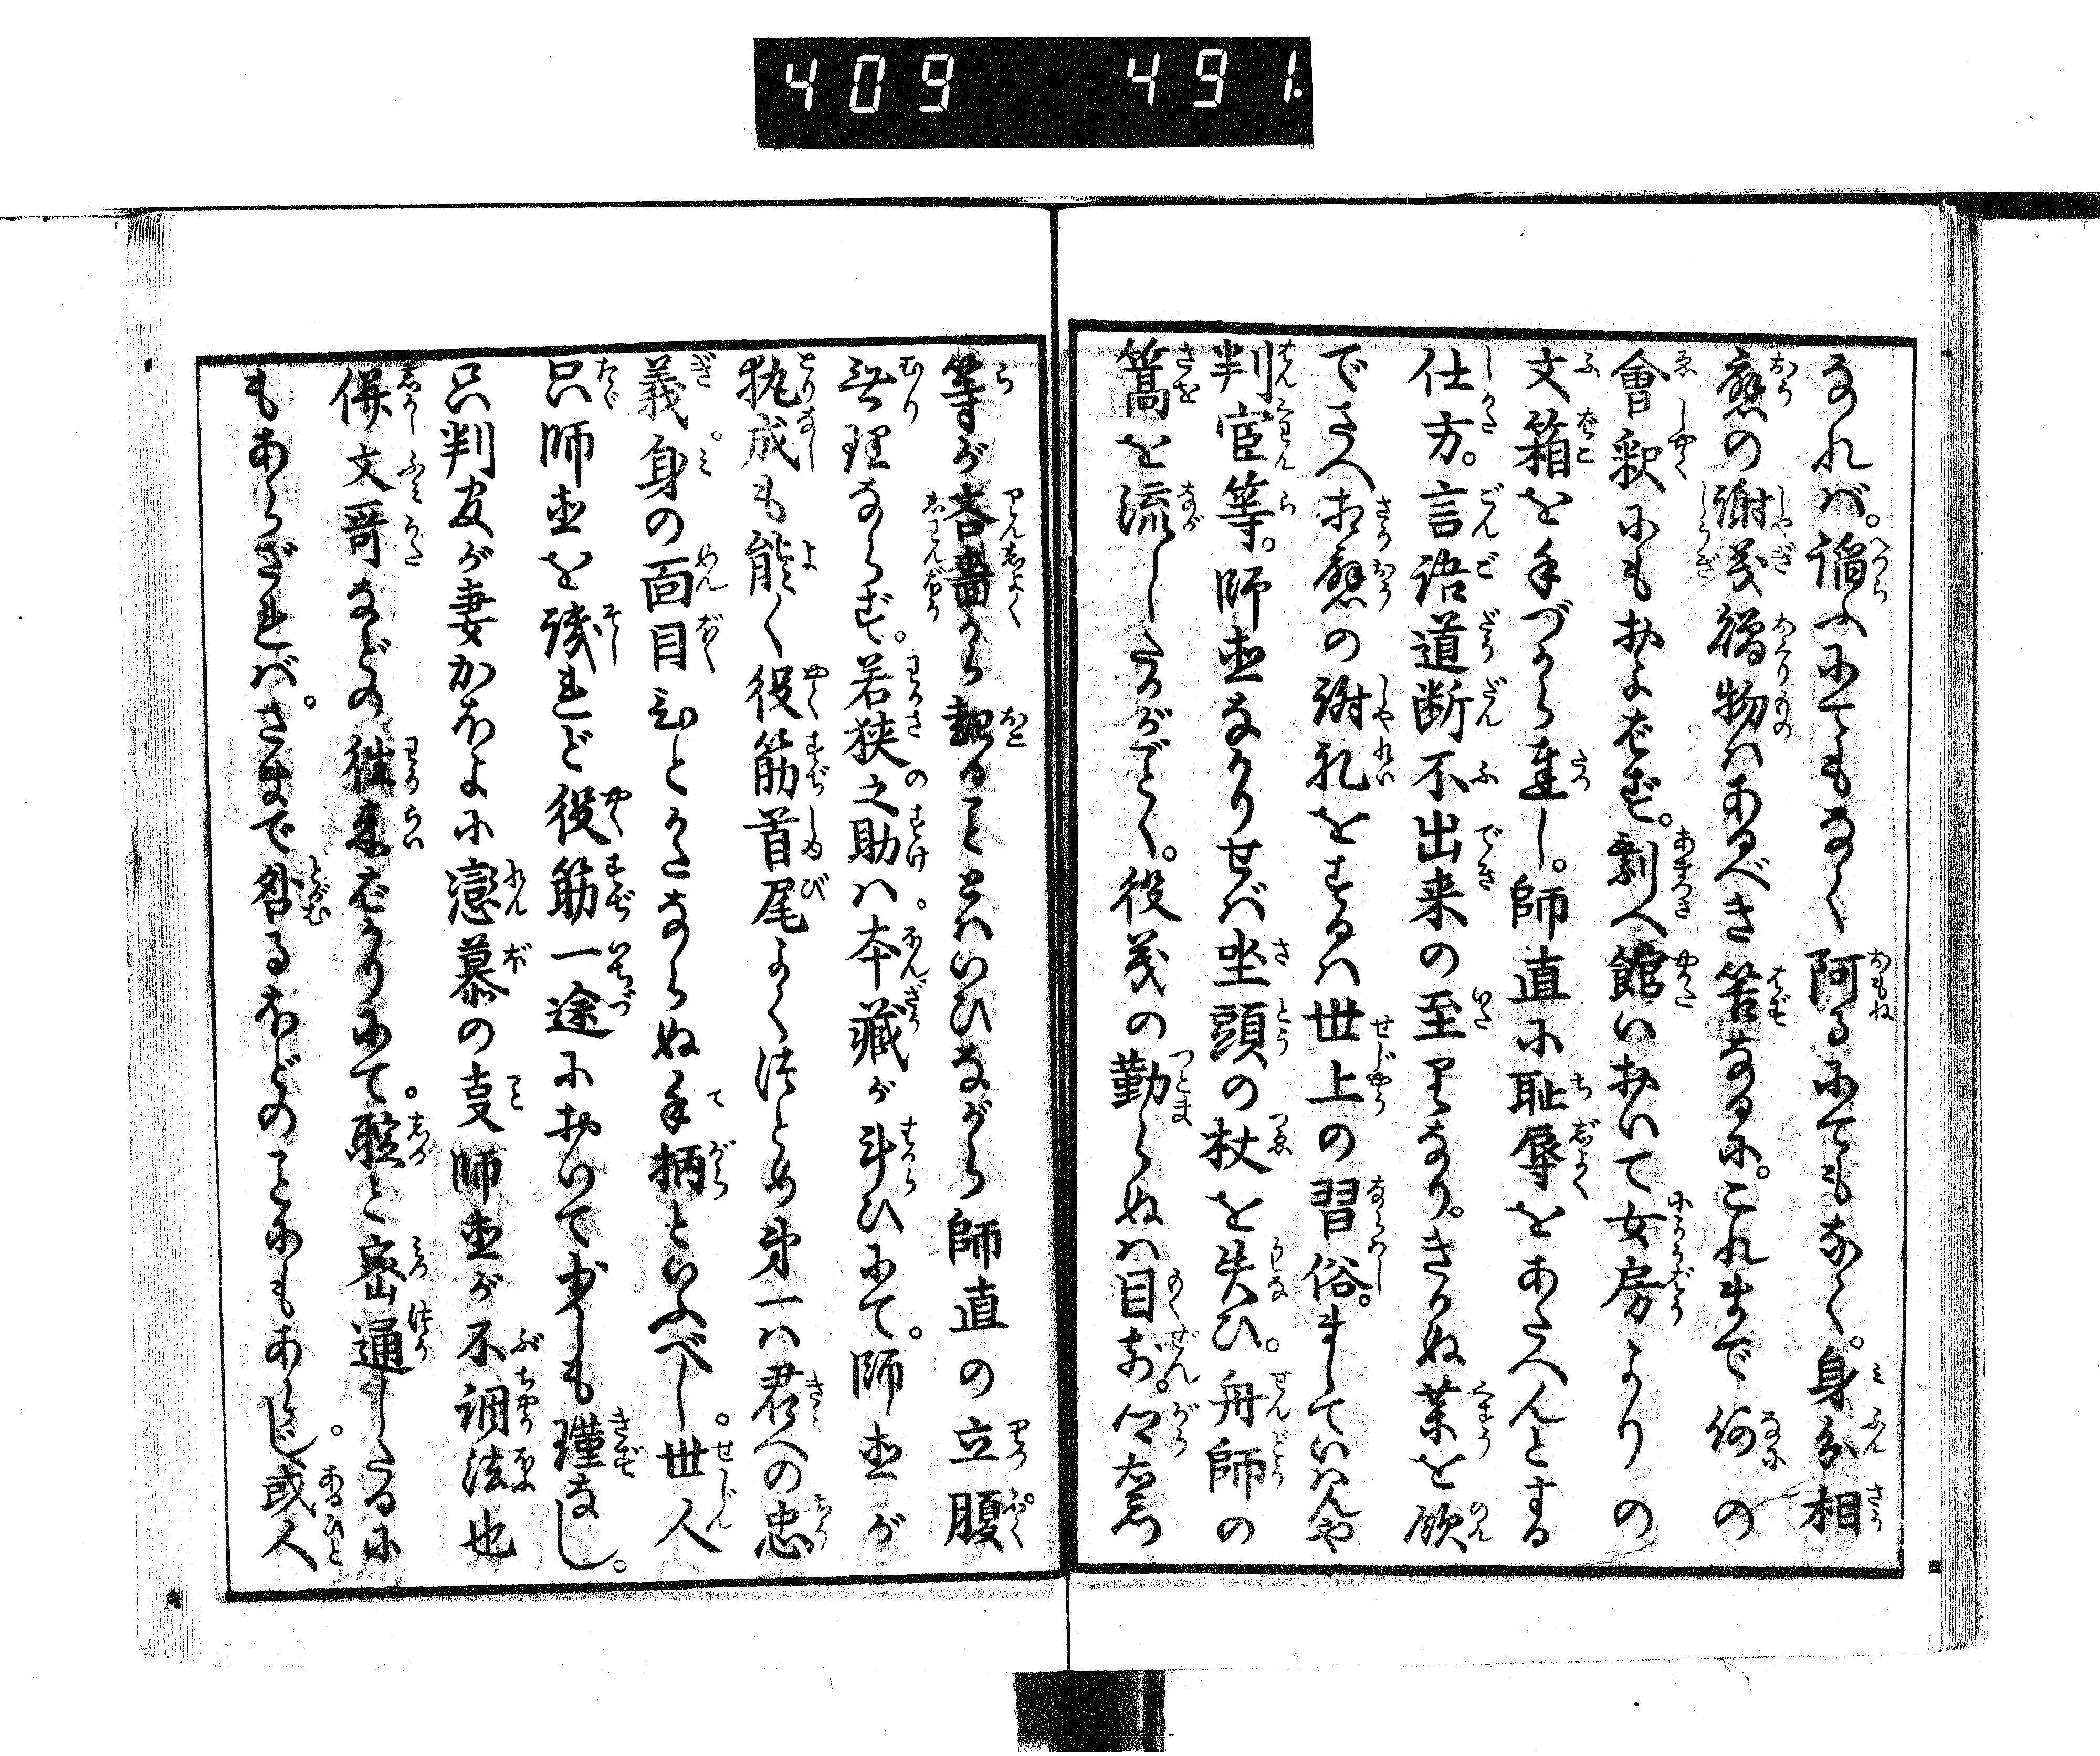 409 491.
なれバ。諂ふにてもなく阿るにてもなく。身分相
應の謝義贈物ハあるべき筈なるに。これまで何の
會釈にもおよばず。剰へ館において女房よりの
文箱を手づから達し。師直に恥辱をあたへんとする
仕方。言語道断不出来の至りなり。きかぬ薬を飲
でさへ相應の謝礼をするハ世上の習俗。ましていはんや
判官等。師直なかりせバ坐頭の杖を失ひ。舟師の
篙を流したるがごとく。役義の勤らぬハ目前。
等が吝嗇から起ることとハいひながら師直の立腹
無理ならず。若狭之助ハ。本蔵が斗ひにて。師直が
執成も能く役筋首尾よくつとめ第一ハ君への忠
義。身の面目といひかたならぬ手柄といふべし。世人
只師直を残れど役筋一途においてハ少しも瑾なし。
只判官が妻かほよに戀慕の事師直が不調法也
併文哥などの往来ばかりにて。聢と密通したるに
もあらざれバ。さまで咎るほどのことにもあらじ。或人